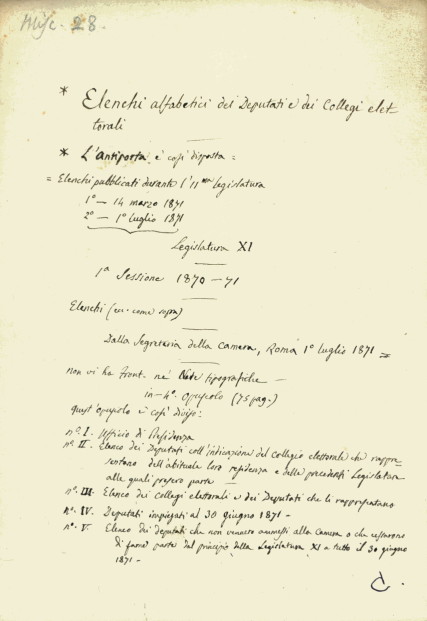 Misc. 28.
* Elenchi alfabetici dei Deputati e dei Collegi elet-
torali
* L'antiporta è così disposta =
= Elenchi pubblicati durante l'11ma legislatura
1° — 14 marzo 1871
2° — 1° luglio 1871
Legislatura XI
1a Sessione 1870—71
Elenchi (ecc. come sopra)
Dalla Segreteria della Camera, Roma 1° luglio 1871 =
non vi ha front. nè Note tipografiche —
in-4°. opuscolo (75 pag.)
quest'opuscolo è così diviso:
n°. I. Ufficio di Presidenza
n°. II. Elenco dei Deputati coll'indicazione del collegio elettorale che rappre-
sentano dell'abituale loro residenza e delle precedenti Legislature
alle quali presero parte —
n°. III. Elenco dei collegi elettorali e dei Deputati che li rappresentano
n°. IV. Deputati impiegati al 30 giugno 1871 —
n°. V. Elenco dei deputati che non vennero ammessi alla Camera o che cessarono
di farne parte dal principio della Legislatura XI a tutto il 30 giugno
1871 —